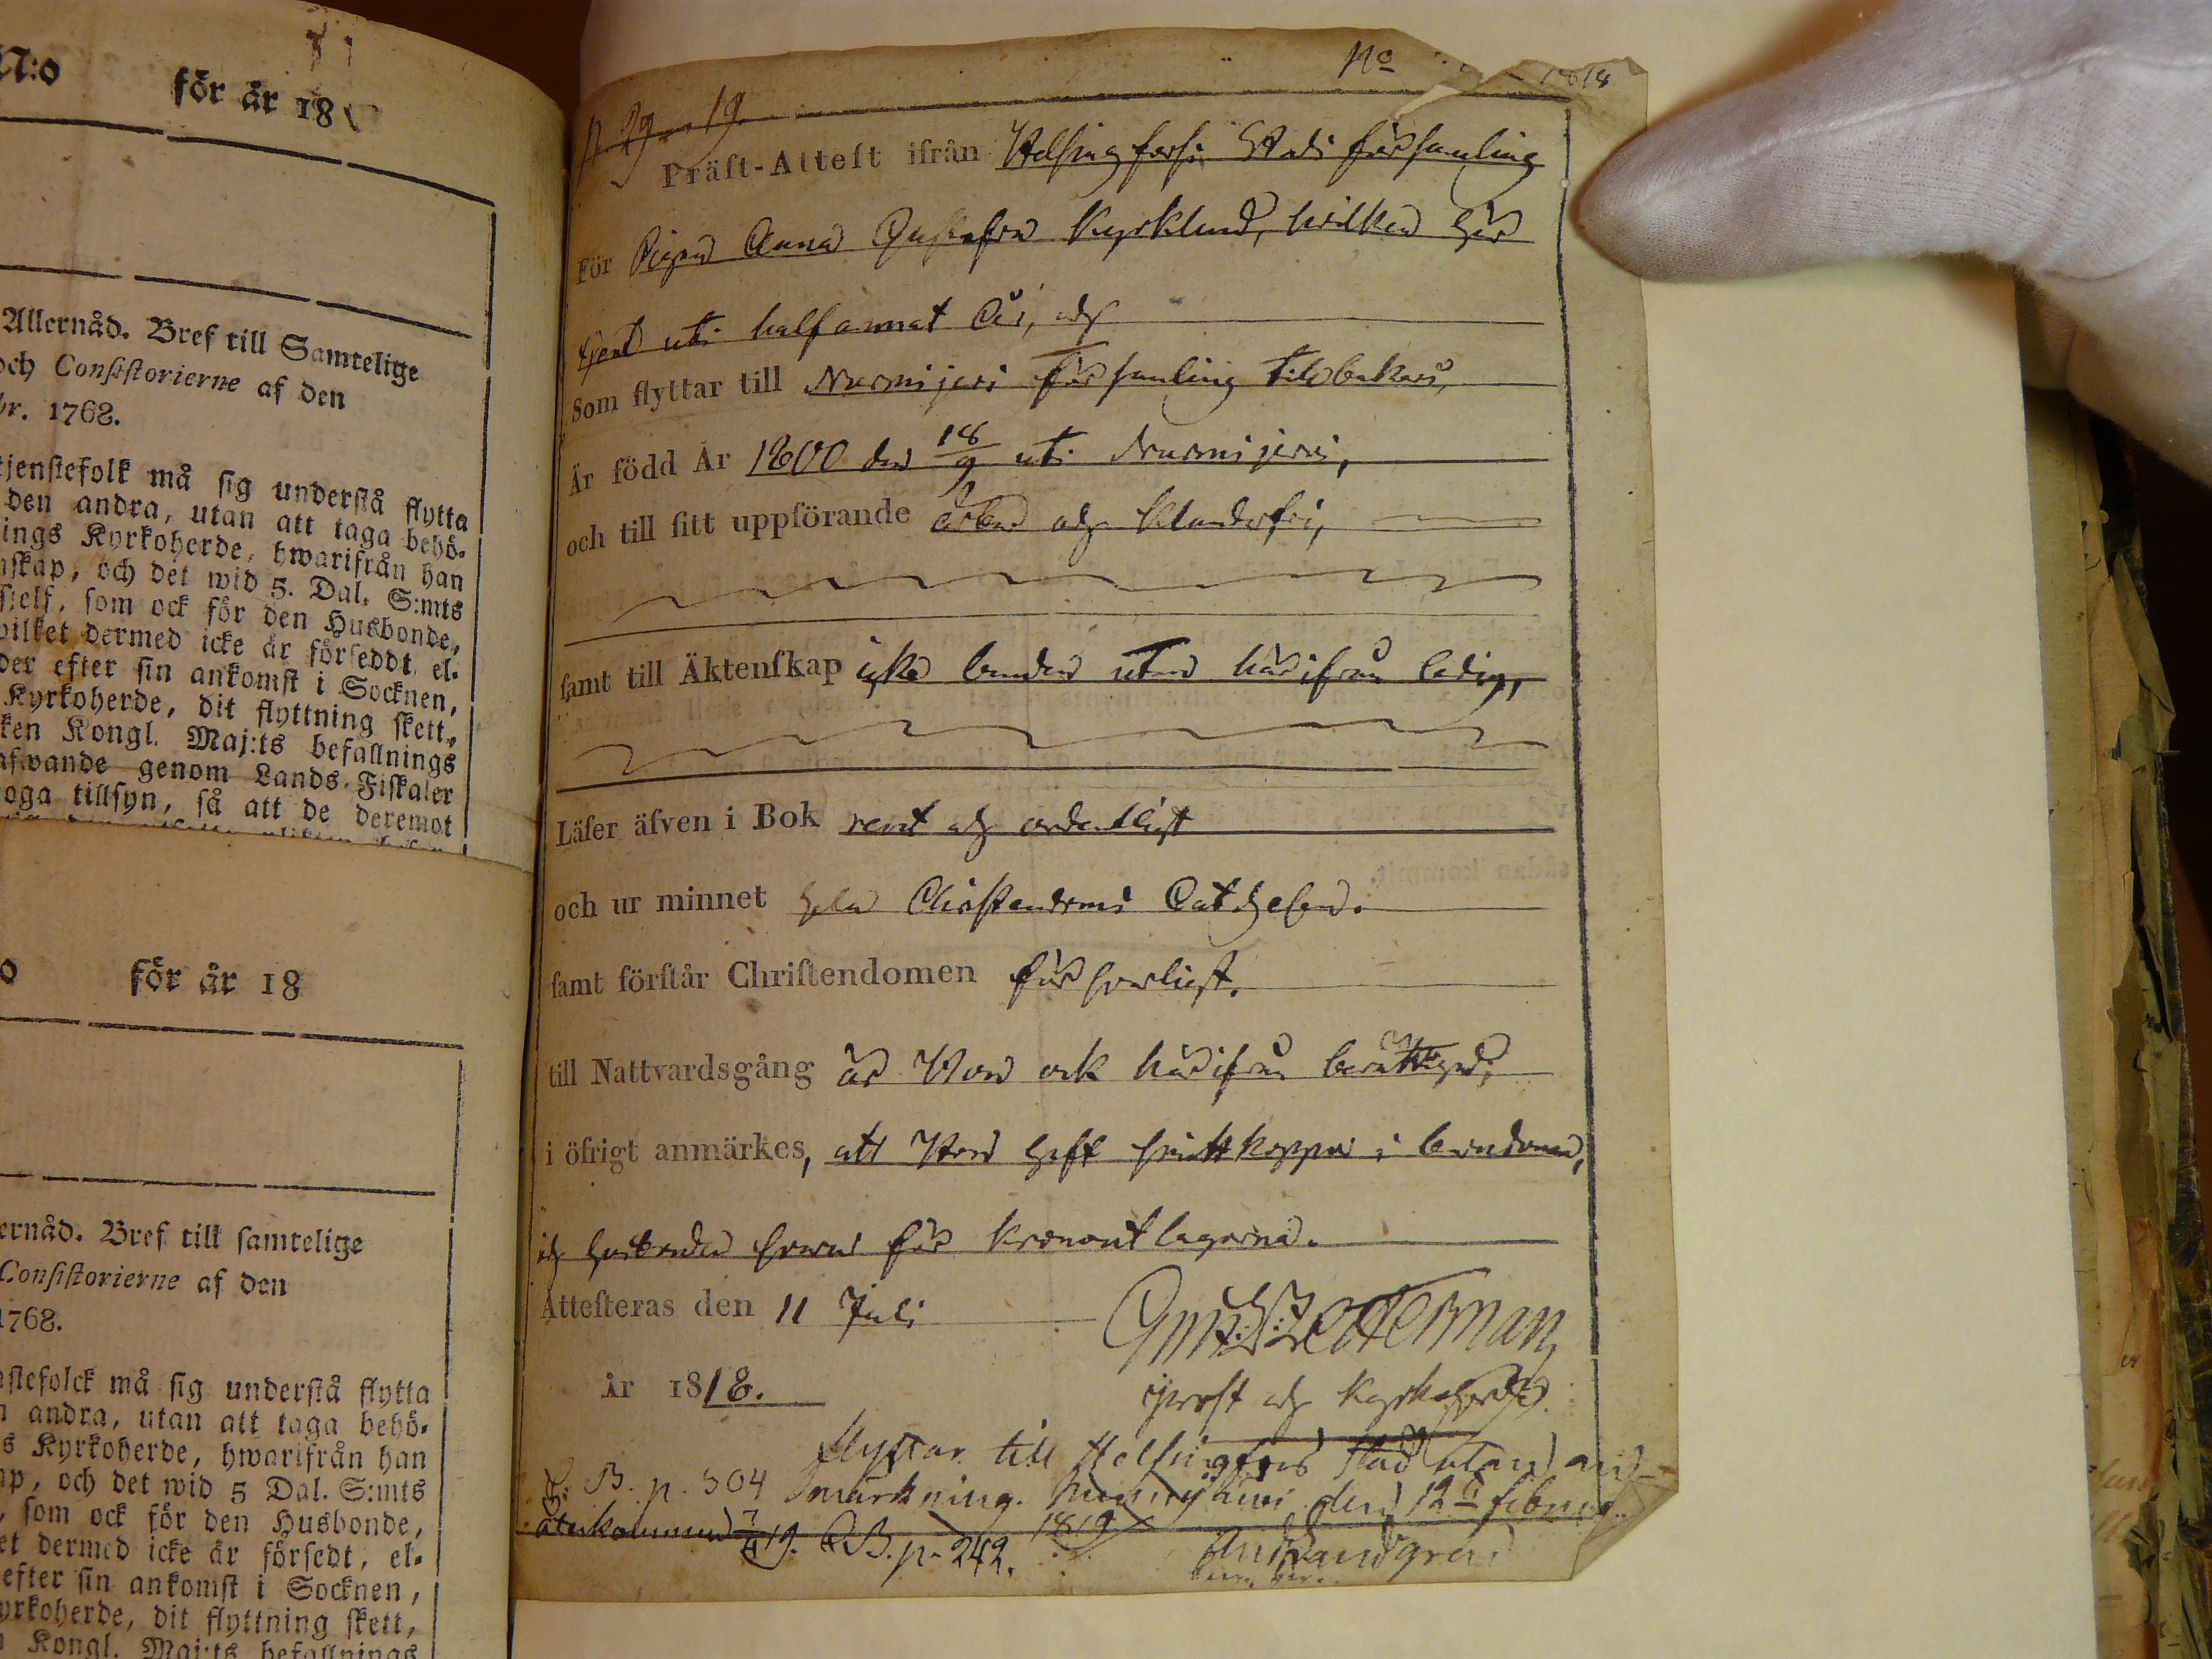 N:o för år 18
Allernåd. Bref till Samtelige
och Consistorierne af den
br. 1768.
tjenstefolk må sig understå flytta
den andra, utan att taga behö-
ings Kyrkoherde, hwarifrån han
nskap, och det wid 5. Dal. S:mts
sjelf, som ock för den Husbonde,
vilket dermed icke är förseddt, el-
der efter sin ankomst i Socknen,
Kyrkoherde, dit flyttning skett,
ken Kongl. Maj:ts befallnings
afwande genom Lands-Fiskaler
oga tillsyn, så att de deremot
o för år 18
ernåd. Bref till samtelige
Consistorierne af den
1768.
nstefolck må sig understå flytta
n andra, utan att taga behö-
s Kyrkoherde, hwarifrån han
ap, och det wid 5 Dal. S:mts
, som ock för den Husbonde,
et dermed icke är försedt, el-
efter sin ankomst i Socknen,
yrkoherde, dit flyttning skett,
n Kongl. Maj:ts befallnings
No 1818
p. 29 19.
Präst-Attest ifrån Helsingfors Stads församling
För Pigan Anna Gustafva Kyrklund, hvilken här
tjent uti halfannat År, och
Som flyttar till Nurmijervi församling tilbakars,
Är född År 1800 den 18/9 uti Nurmijervi,
och till sitt uppförande ärbar och klanderfri,
samt till Äktenskap icke bunden utan härifrån ledig,
Läser äfven i Bok rent och ordentligt
och ur minnet hela Christendoms Catechesen.
samt förstår Christendomen försvarligt.
till Nattvardsgång är Hon ock härifrån berättigad;
i öfrigt anmärkes, att Hon haft smittkoppor i barndomen,
och husbonden svarar för kronoutlagorna.
Attesteras den 11 Juli
år 1818.
prost och Kyrkoherde.
flyttar till Helsingfors stad utan an-
märkning. Nurmijärvi den 12te februari
1819
B. p. 304
återkommen 19. B. p. 242.